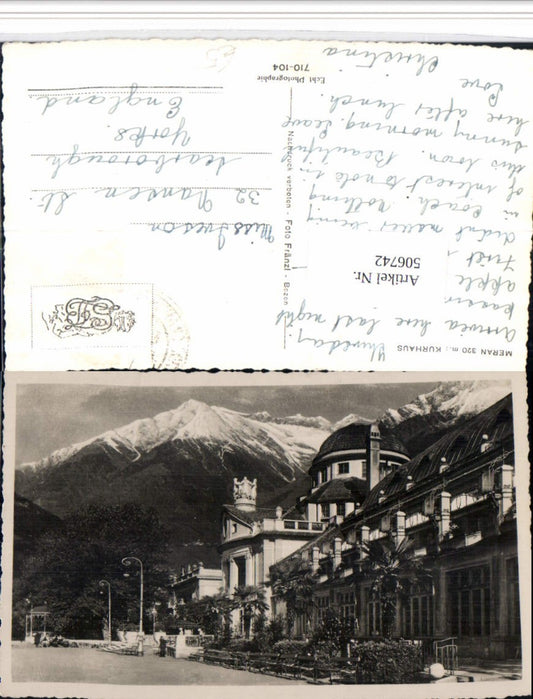 MERAN 320 m.: KURHAUS
Thursday.
Arrived here last night
apple
didnt
in coach. Nothing
of interest to note in
this town. Beautiful
sunny morning. Leave
here after lunch.
Love
Christina
710-104
Echt Photographie
Nachdruck verboten - Foto Fränzl - Bozen
Artikel Nr.
506742
Miss Iveson
32 Nansen St.
Scarborough
Yorks.
England.